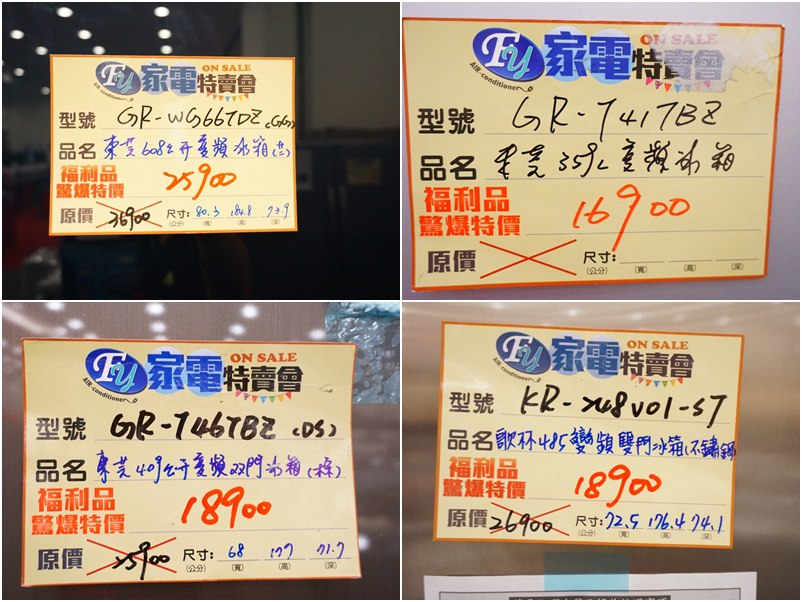 Fy 家電特賣會 ON SALE
AIR-conditioner
型號 GR-WG66TDZ (GG)
品名 東芝608公升變頻冰箱
福利品
驚爆特價 25900
原價 36900 尺寸: 80.3 184.8 73.9
(公分) (寬) (高) (深)
Fy 家電特賣會 ON SALE
AIR-conditioner
型號 GR-T41TBZ
品名 東芝359L變頻冰箱
福利品
驚爆特價 16900
原價 尺寸:
(公分) (寬) (高) (深)
Fy 家電特賣會 ON SALE
AIR-conditioner
型號 GR-T46TBZ (DS)
品名 東芝409公升變頻双門冰箱
福利品
驚爆特價 18900
原價 25900 尺寸: 68 177 71.7
(公分) (寬) (高) (深)
Fy 家電特賣會 ON SALE
AIR-conditioner
型號 KR-248V01-ST
品名 歌林485變頻雙門冰箱(不鏽鋼
福利品
驚爆特價 18900
原價 26900 尺寸: 72.5 176.4 74.1
(公分) (寬) (高) (深)